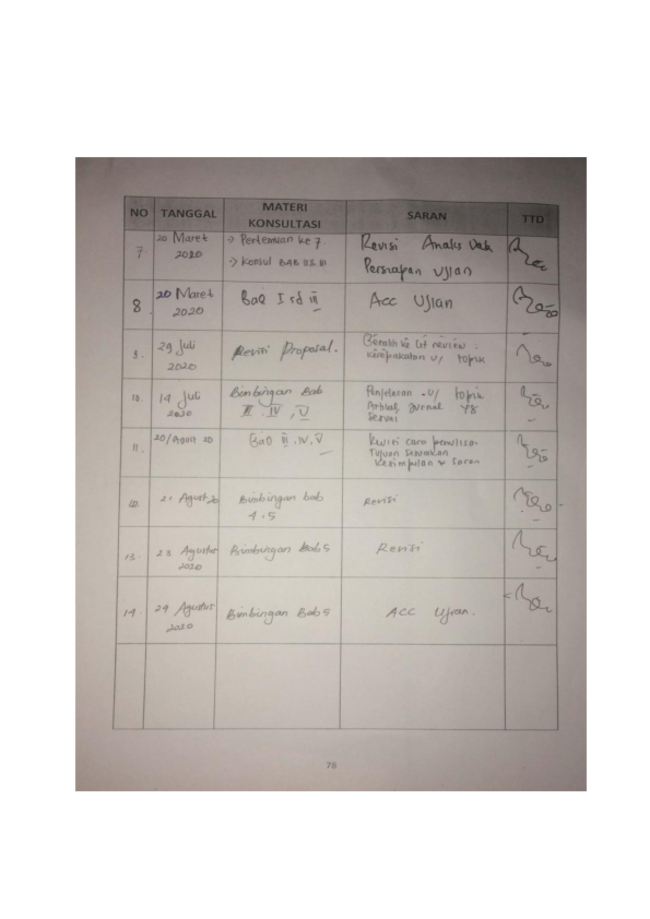 NO TANGGAL MATERI KONSULTASI SARAN TTD
7 20 Maret 2020 -> Pertemuan ke 7. Revisi Analis
-> Konsul BAB II & III Persiapan Ujian
8 20 Maret 2020 Bab I sd III Acc Ujian
9. 29 Juli 2020 Revisi Proposal. lit review :
kesepakatan u/ topik
10. 14 Juli 2020 Bimbingan Bab Penjelasan u/ topik
III IV, V Artikel Jurnal yg
sesuai
11. 20/Agust 20 Bab III, IV, V Revisi cara penulisan
Tujuan sesuaikan
Kesimpulan & Saran
12. 21 Agust 20 Bimbingan bab Revisi
4.5
13. 28 Agustus 2020 Bimbingan Bab 5 Revisi
14. 29 Agustus 2020 Bimbingan Bab 5 ACC Ujian.
78